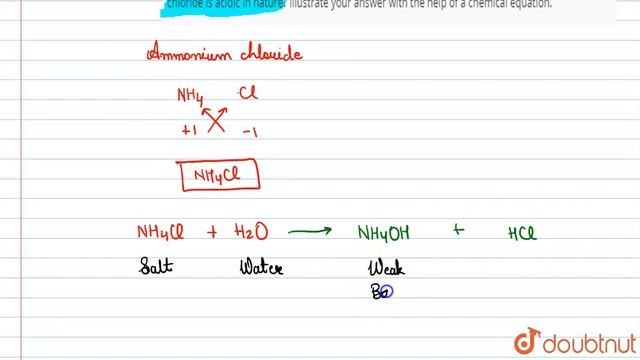 chloride is acidic in nature? Illustrate your answer with the help of a chemical equation.
Ammonium chloride
NH4 Cl
+1 -1
NH4Cl
NH4Cl + H2O → NH4OH + HCl
Salt Water Weak
Ba
doubtnut